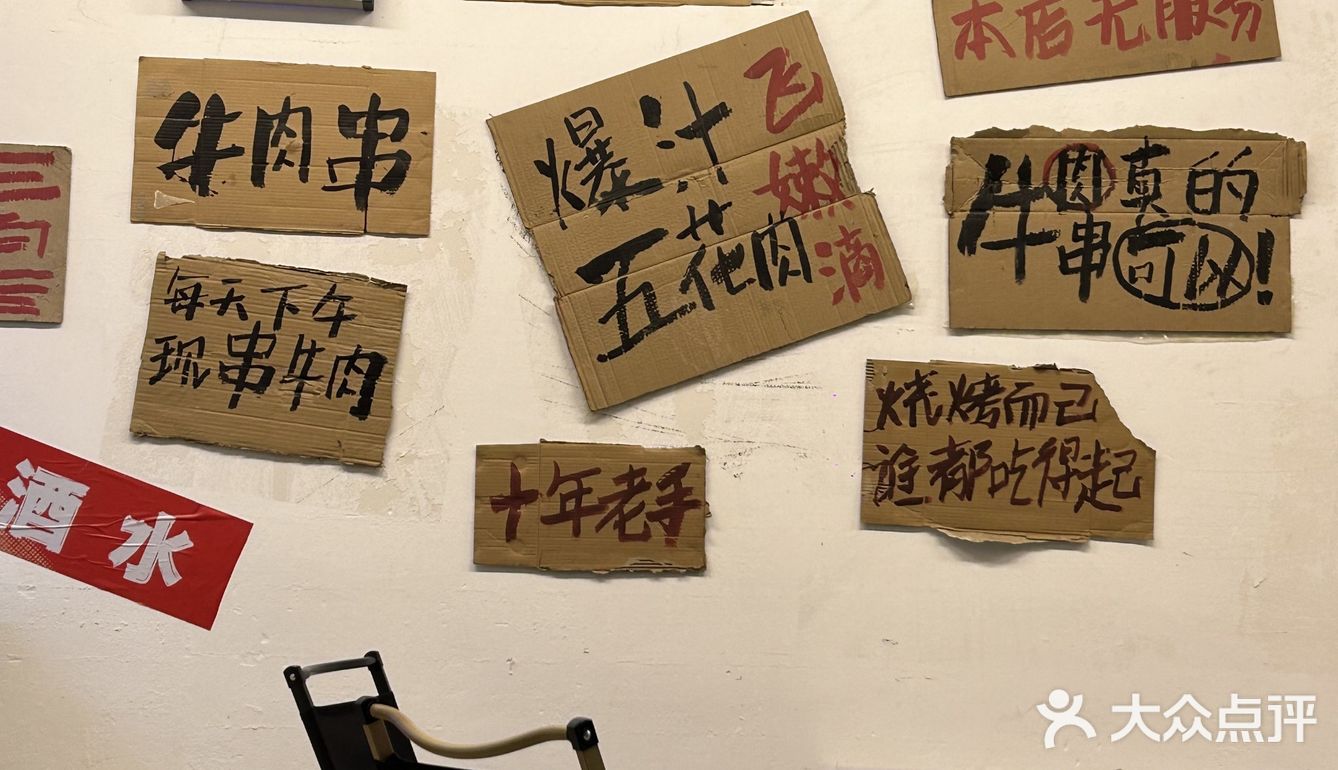 本店无服务
牛肉串
爆汁
五花肉
飞嫩滴
牛肉串真的
可以!
每天下午
现串牛肉
烧烤而已
谁都吃得起
十年老手
酒水
大众点评